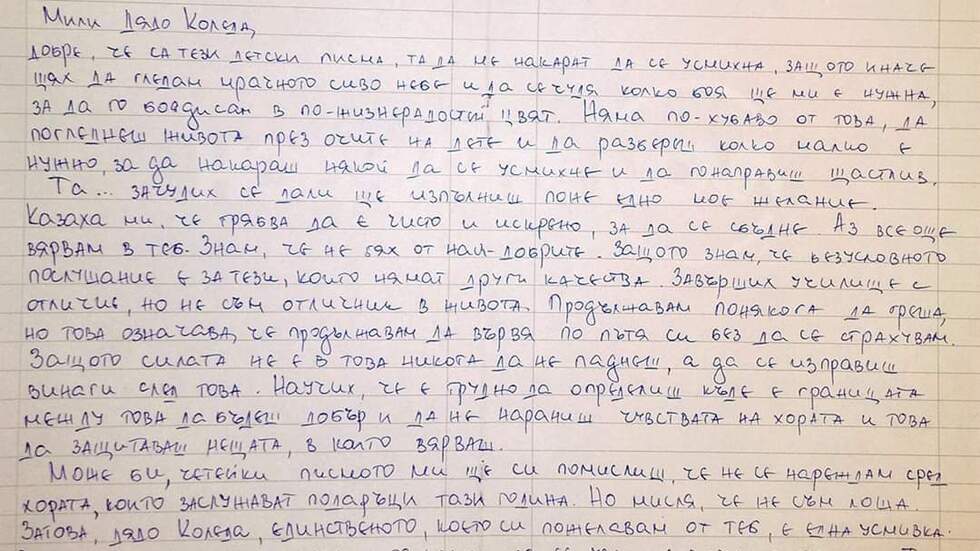 Мили Дядо Коледа,
добре, че са тези детски писма, та да ме накарат да се усмихна, защото иначе
щях да гледам мрачното сиво небе и да се чудя колко боя ще ми е нужна,
за да го боядисам в по-жизнерадостен цвят. Няма по-хубаво от това, да
погледнеш живота през очите на дете и да разбереш колко малко е
нужно, за да накараш някой да се усмихне и да го направиш щастлив.
Та... зачудих се дали ще изпълниш поне едно мое желание.
Казаха ми, че трябва да е чисто и искрено, за да се сбъдне. Аз все още
вярвам в теб. Знам, че не бях от най-добрите. Защото знам, че безусловното
послушание е за тези, които нямат други качества. Завърших училище с
отличие, но не съм отличник в живота. Продължавам понякога да греша,
но това означава, че продължавам да вървя по пътя си без да се страхувам.
Защото силата не е в това никога да не паднеш, а да се изправиш
винаги след това. Научих, че е трудно да определиш къде е границата
между това да бъдеш добър и да не нараниш чувствата на хората и това
да защитаваш нещата, в които вярваш.
Може би, четейки писмото ми ще си помислиш, че не се нареждам сред
хората, които заслужават подаръци тази година. Но мисля, че не съм лоша.
Затова, Дядо Коледа, единственото, което си пожелавам от теб, е една усмивка.